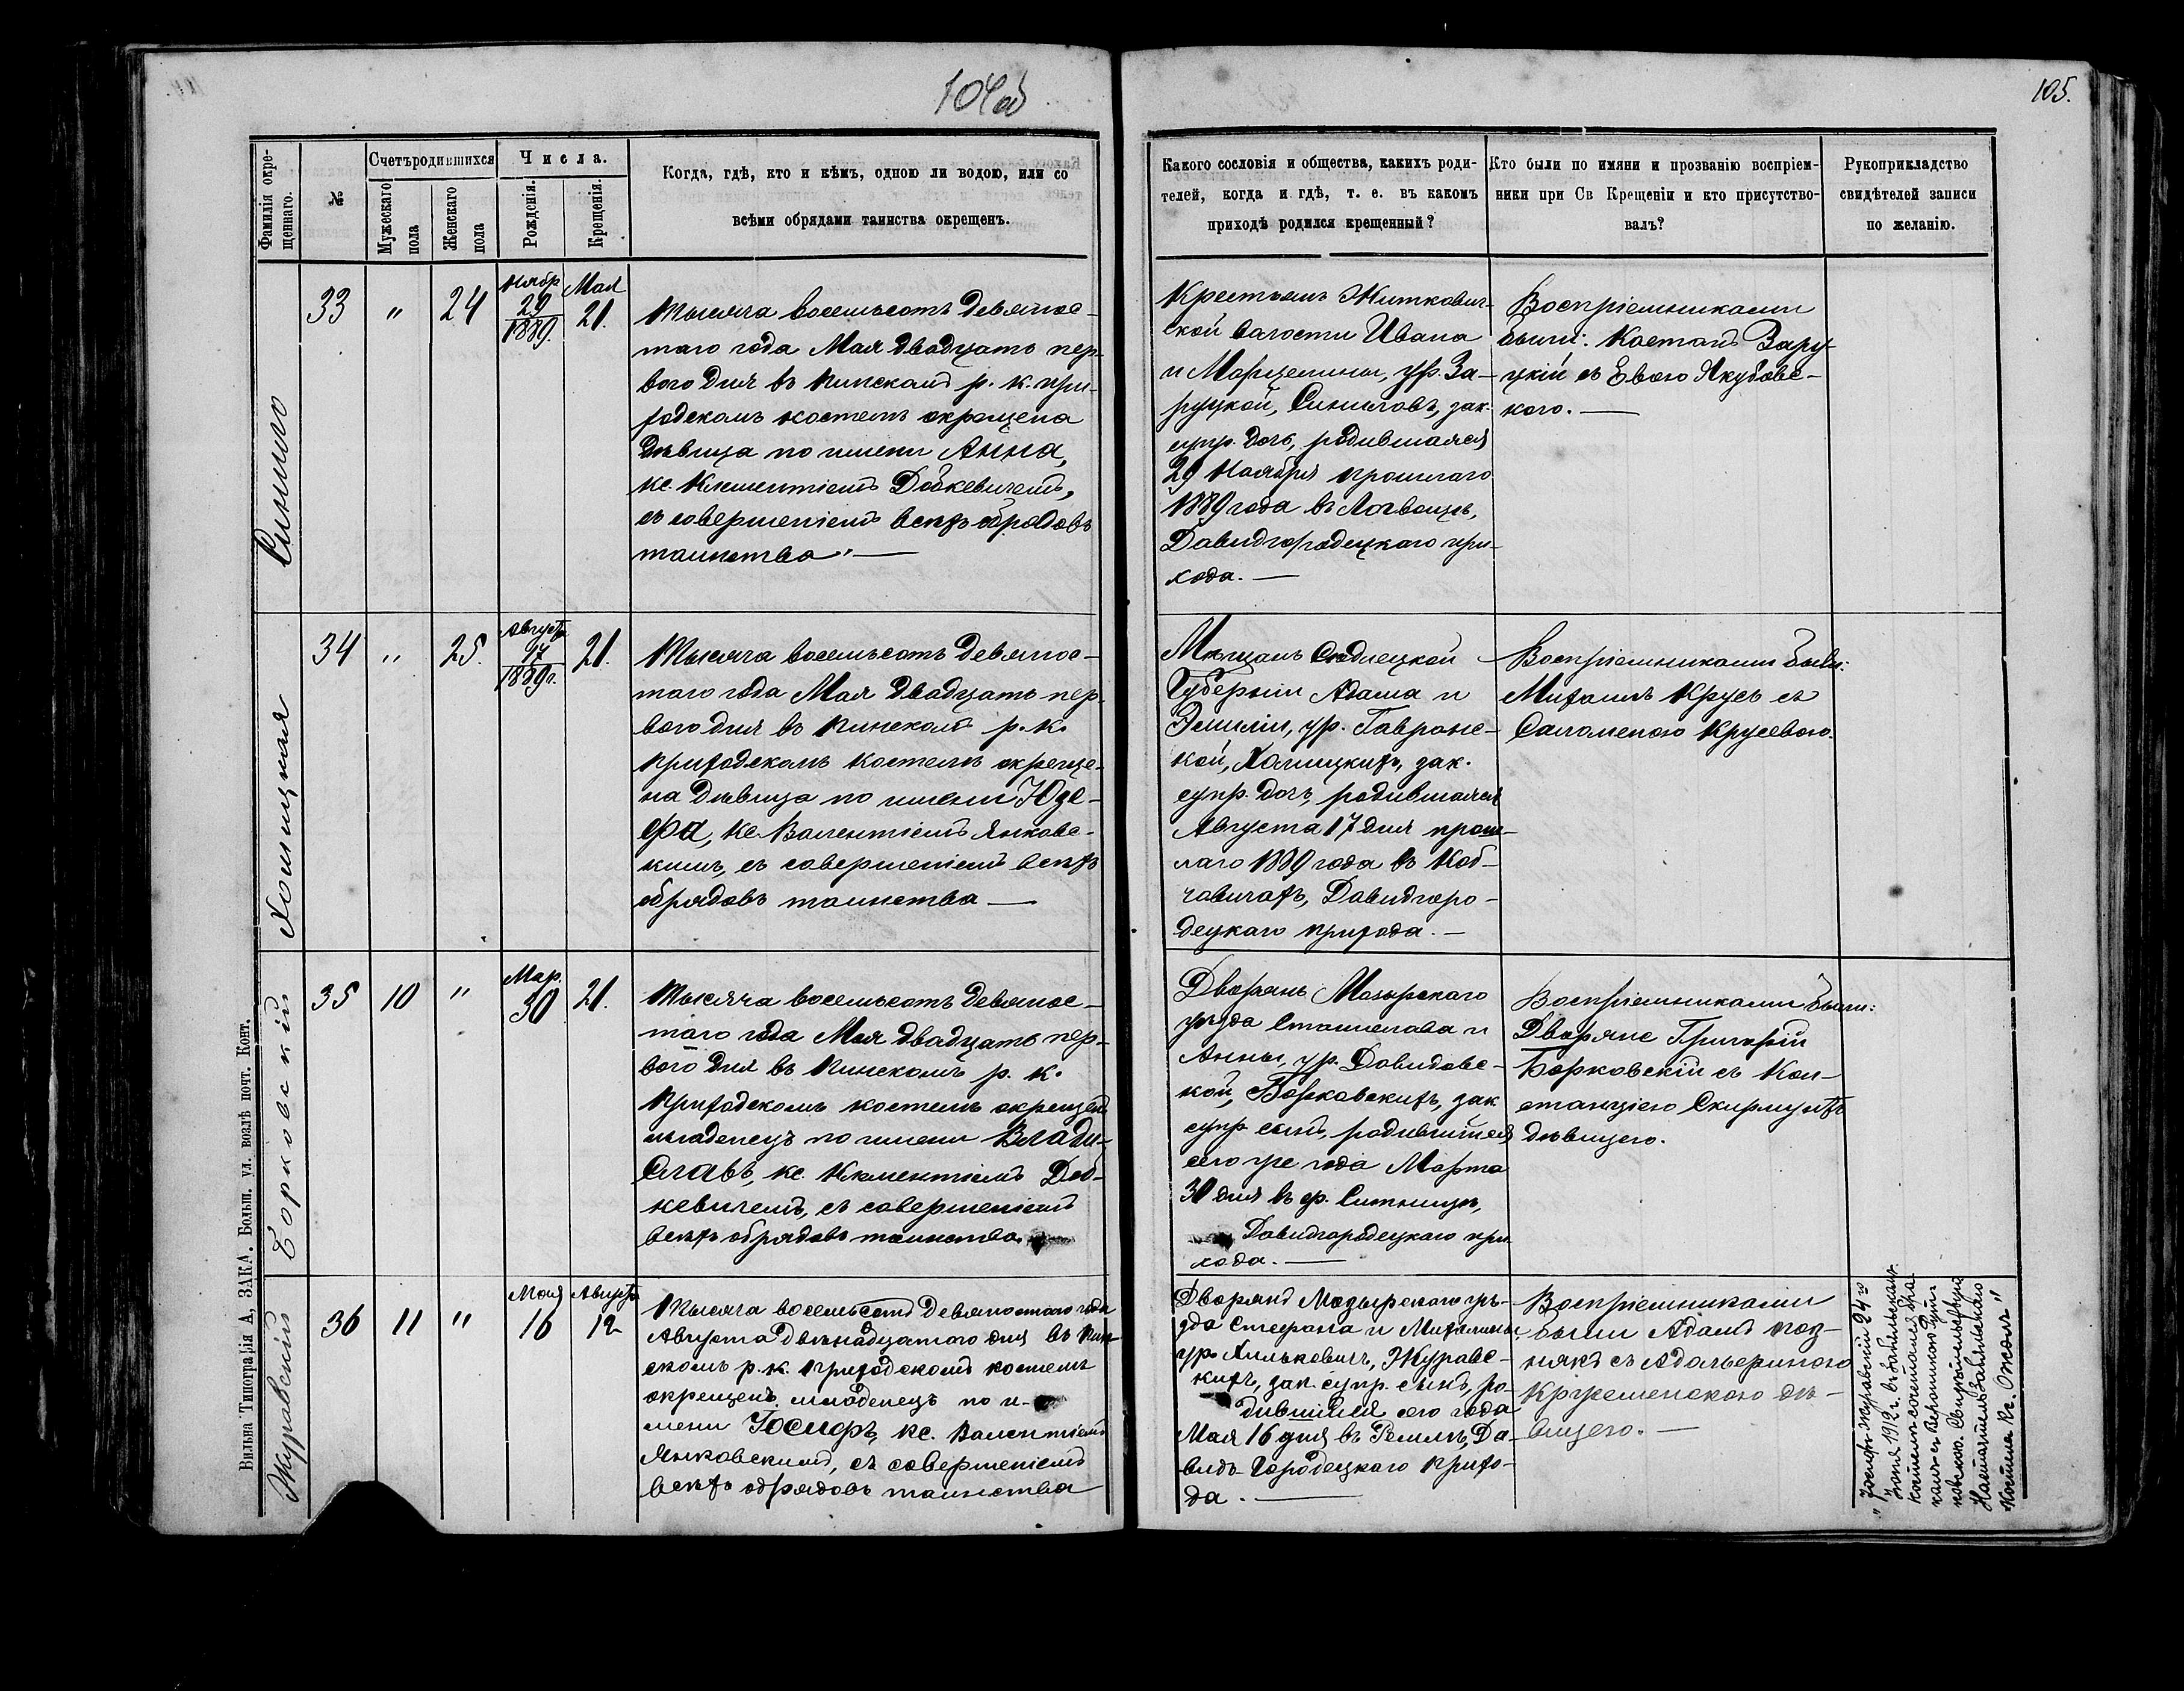 104об
105.
Фамилія окре-
щеннаго.
№
Счетъ родившихся
Мужескаго
пола
Женскаго
пола
Числа.
Рожденія.
Крещенія.
Когда, гдѣ, кто и кѣмъ, одною ли водою, или со
всѣми обрядами таинства окрещенъ.
Какого сословія и общества, какихъ роди-
телей, когда и гдѣ, т. е. въ какомъ
приходѣ родился крещенный?
Кто были по имяни и прозванію воспріем-
ники при Св Крещеніи и кто присутство-
валъ?
Рукоприкладство
свидѣтелей записи
по желанію.
Синило
33
"
24
Ноябр
29
1889.
Мая
21.
Тысяча восемьсотъ девянос-
таго года Мая двадцать пер-
вого дня въ Пинскомъ р. к. при-
ходскомъ костелѣ окрещена
дѣвица по имени Анна,
кс. Климентіемъ Добкевичемъ,
съ совершеніемъ всѣхъ обрядовъ
таинства. —
Крестьянъ Житкович-
ской волости Ивана
и Марцелины, ур. За-
руцкой, Синиловъ, зак.
супр. дочь, родившаяся
29 Ноября прошлаго
1889 года въ
Давидгородецкаго при-
хода. —
Воспріемниками
были: Каетанъ Зару-
цкій съ Евою Якубовс-
кою. —
Холицкая
34
"
25.
Август
17
1889г.
21.
Тысяча восемьсотъ девянос-
таго года Мая двадцать пер-
вого дня въ Пинскомъ р. к.
приходскомъ костелѣ окреще-
на дѣвица по имени Юзе-
фа, кс. Валентіемъ Янковс-
кимъ, съ совершеніемъ всѣхъ
обрядовъ таинства —
Мѣщанъ Сѣдлецкой
Губерніи Адама и
Эмиліи, ур. Гавронс-
кой, Холицкихъ, зак.
супр. дочь, родившаяся
Августа 17 дня прош-
лаго 1889 года въ Коб-
човичахъ, Давидгоро-
децкаго прихода. —
Воспріемниками были:
Михаилъ Крусь съ
Саломеною Крусевою.
Борковскій
35
10
"
Мар.
30
21.
Тысяча восемьсотъ девянос-
таго года Мая двадцать пер-
вого дня въ Пинскомъ р. к.
приходскомъ костелѣ окрещенъ
младенецъ по имени Влади-
славъ, кс. Климентіемъ Доб-
кевичемъ, съ совершеніемъ
всѣхъ обрядовъ таинства.
Дворянъ Мозырскаго
уѣзда Станислава и
Анны, ур. Давидовс-
кой, Борковскихъ, зак
супр. сынъ, родившійся
сего же года Марта
30 дня въ ф. Ситницѣ,
Давидгородецкаго при
хода. —
Воспріемниками были:
Дворяне Григорій
Борковскій съ Кон-
станціею Скирмунтъ
дѣвицею.
Журавскій
36
11
"
Мая
16
Августа
12
Тысяча восемьсотъ девяностаго года
Августа двѣнадцатого дня въ Пин-
скомъ р. к. приходскомъ костелѣ
окрещенъ младенецъ по и-
мени Іосифъ, кс. Валентіемъ
Янковскимъ, съ совершеніемъ
всѣхъ обрядовъ таинства
Дворянъ Мозырскаго уѣ-
зда Стефана и Михалины
ур. Хилькевичъ, Журавс-
кихъ, зак. супр. сынъ, ро-
дившійся сего года
Мая 16 дня въ Ремлѣ, Да-
видъ-Городецкаго прихо-
да. —
Воспріемниками
были Адамъ Поз-
някъ съ Адальериною
Кржеменскою дѣ-
вицею. —
"Іосифъ Журавскій 24 го
Іюня 1912 г. въ
костелѣ сочетался бра
комъ съ Вероникою
Настоятель
Костела Кс. "
Вильна Типографія А, ЗАКА. Больш. ул. возлѣ почт. Конт.